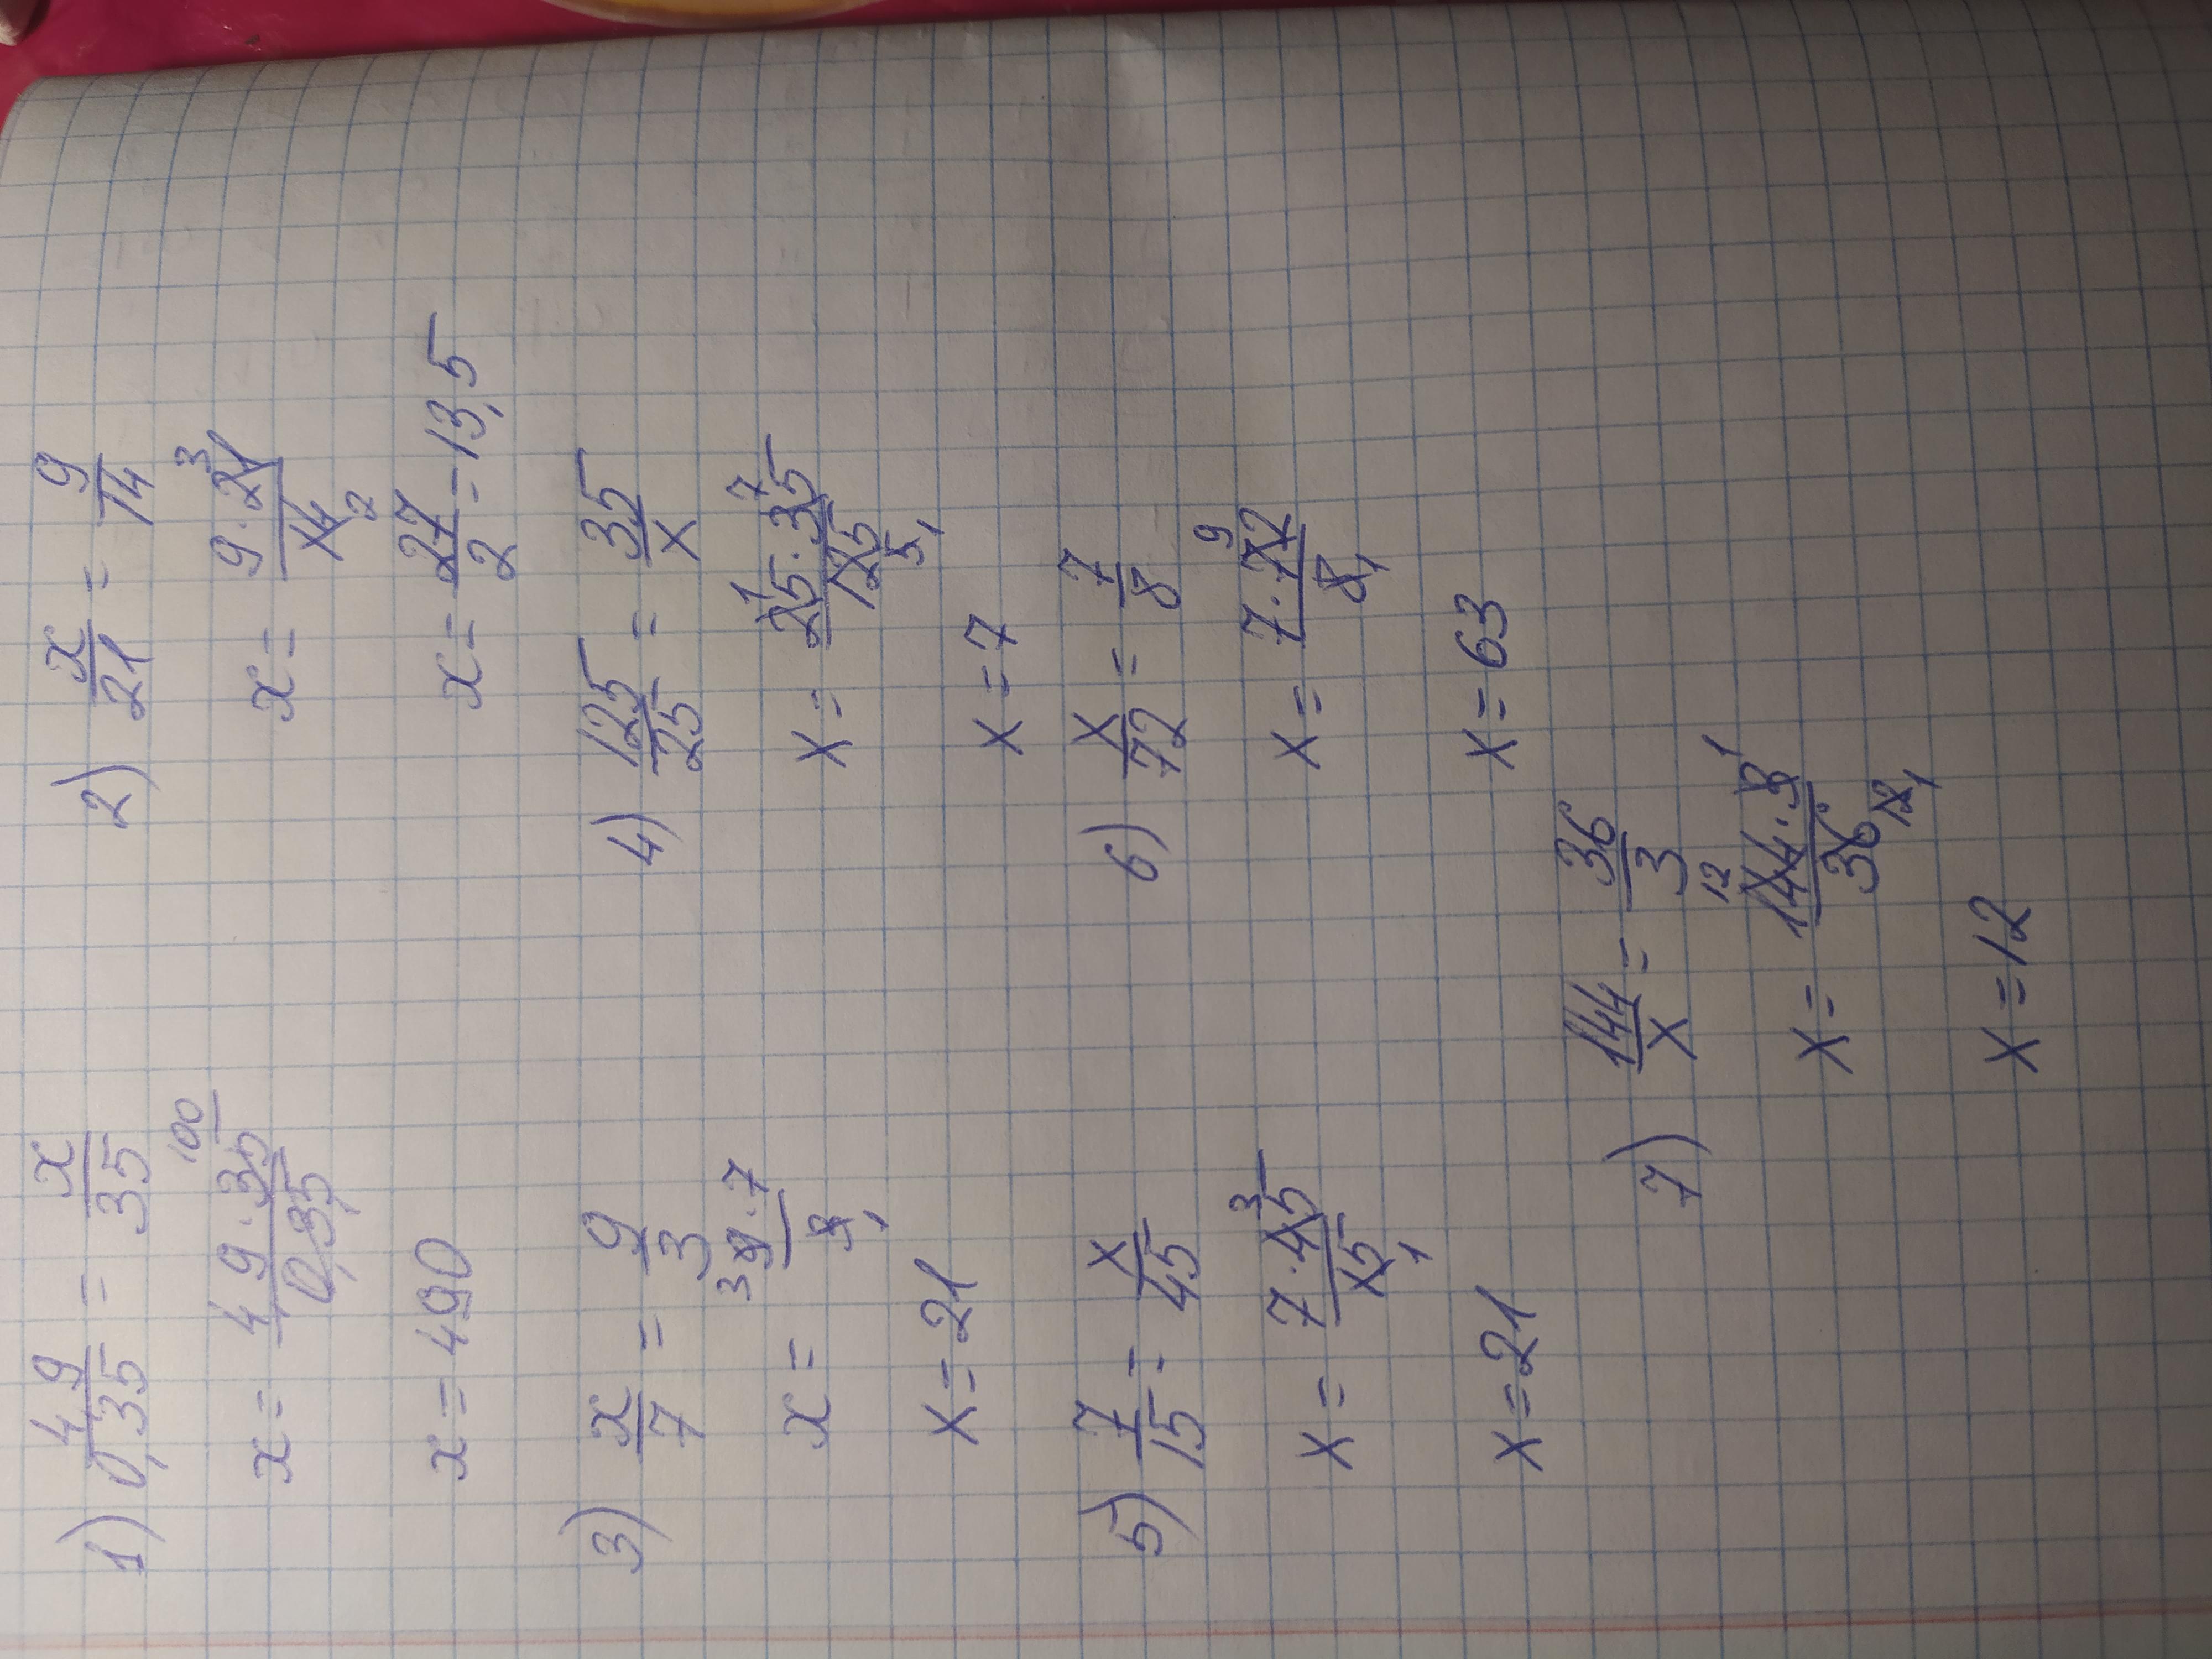 1) 4,9/0,35 = x/35
x = 4,9·35/0,35 100
x = 490
2) x/21 = 9/14
x = 9·21/14 3 2
x = 27/2 = 13,5
3) x/7 = 9/3
x = 9·7/3 3 1
x = 21
4) 125/25 = 35/x
x = 25·35/125 1 7 5 1
x = 7
5) 7/15 = x/45
x = 7·45/15 3 1
x = 21
6) x/72 = 7/8
x = 7·72/8 9 1
x = 63
7) 144/x = 36/3
x = 144·3/36 12 1 12 1
x = 12